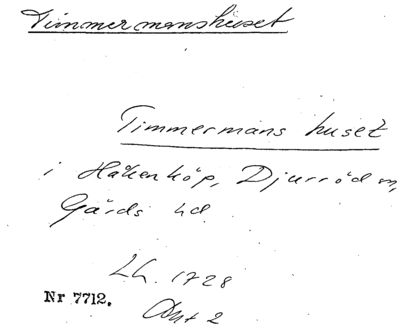 Timmermanshuset
Timmermans huset
i Håkenköp, Djurröd sn,
Gärds hd
Lh. 1728
Nr 7712.
Ant 2